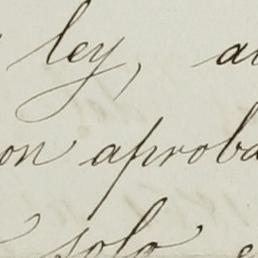 ley, a
on aproba
solo